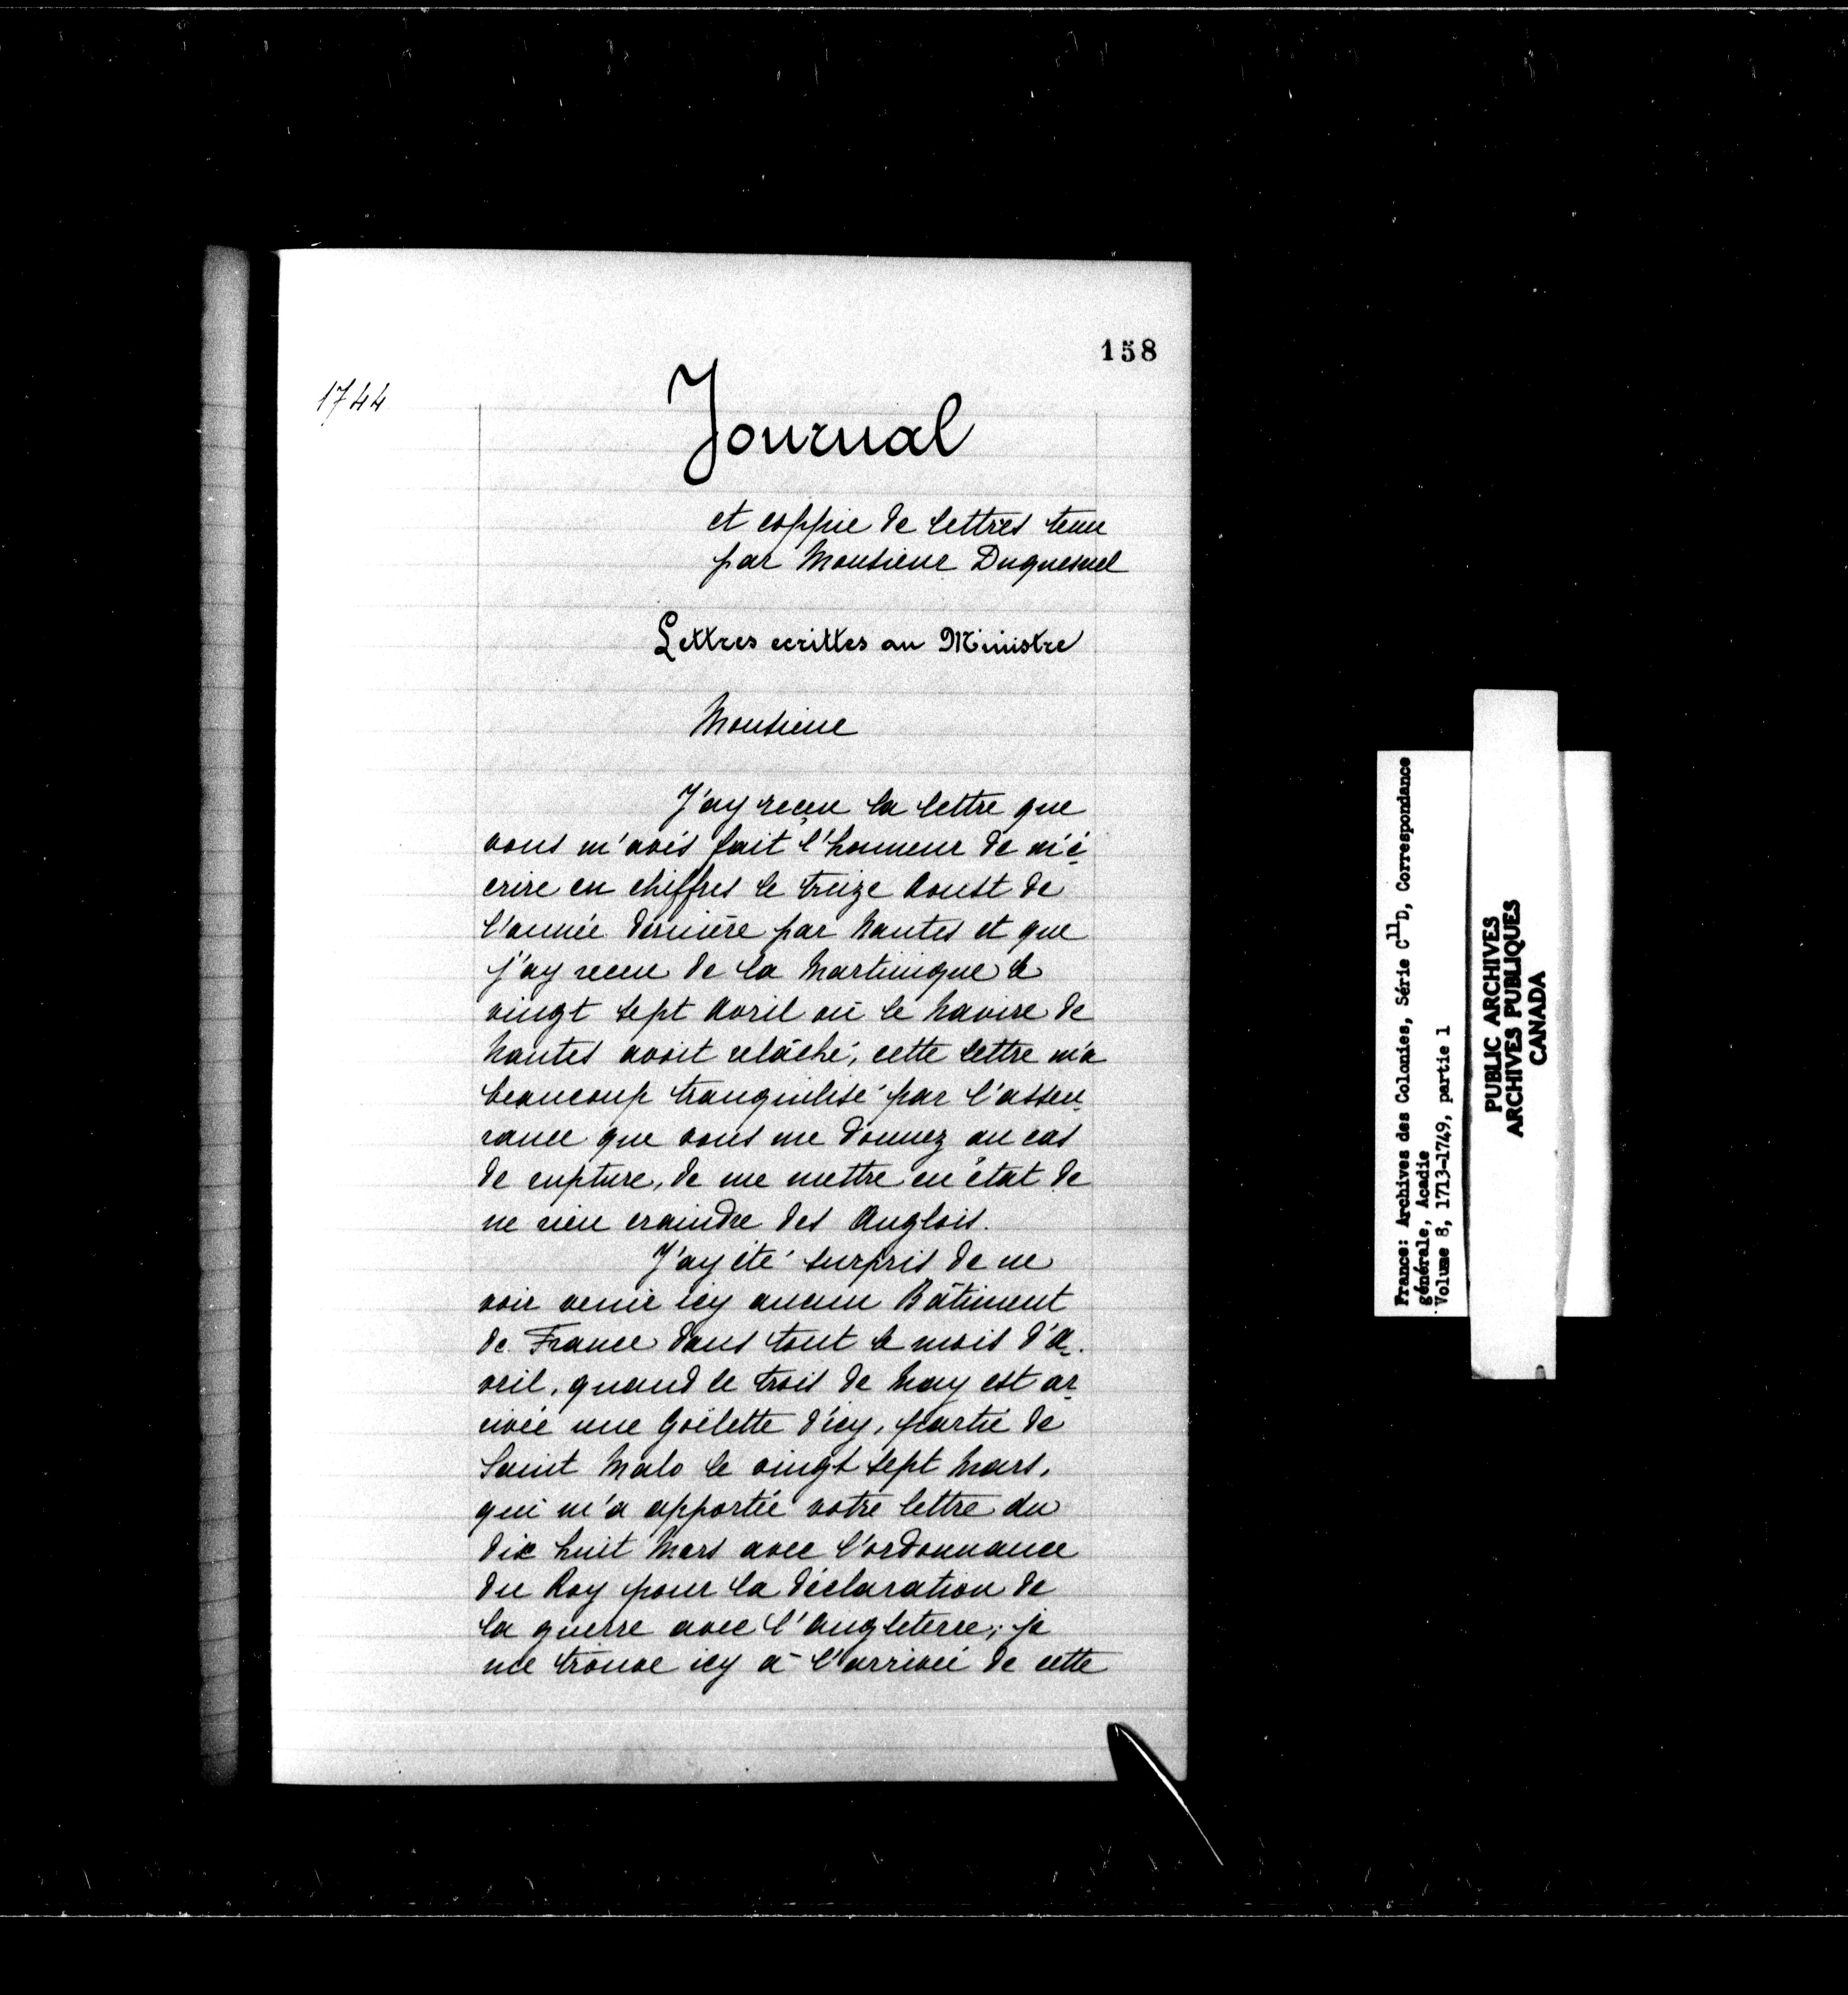 158
1744
Journal
et coppie de lettres tenu
par Monsieur Duquesnel
Lettres ecrittes au Ministre
Monsieur
J'ay reçeu la lettre que
vous m'avés fait l'honneur de m'é
crire en chiffres le treize Aoust de
l'année dernière par Nantes et que
j'ay receu de la Martinique le
vingt sept Avril où le Navire de
Nantes avoit relâché; cette lettre m'a
beaucoup tranquilisé par l'asseu
rance que vous me donnez au cas
de rupture, de me mettre en état de
ne rien craindre des Anglois.
J'ay été surpris de ne
voir venir icy aucun Bâtiment
de France dans tout le mois d'A.
vril, quand le trois de May est ar
rivée une Goëlette d'icy, partie de
Saint Malo le vingt sept Mars,
qui m'a apportée votre lettre du
dix huit Mars avec l'ordonnance
du Roy pour la déclaration de
la guerre avec l'Angleterre; je
me trouve icy à l'arrivée de cette
France: Archives des Colonies, Série C11D, Correspondance
générale, Acadie
Volume 8, 1713-1749, partie 1
PUBLIC ARCHIVES
ARCHIVES PUBLIQUES
CANADA